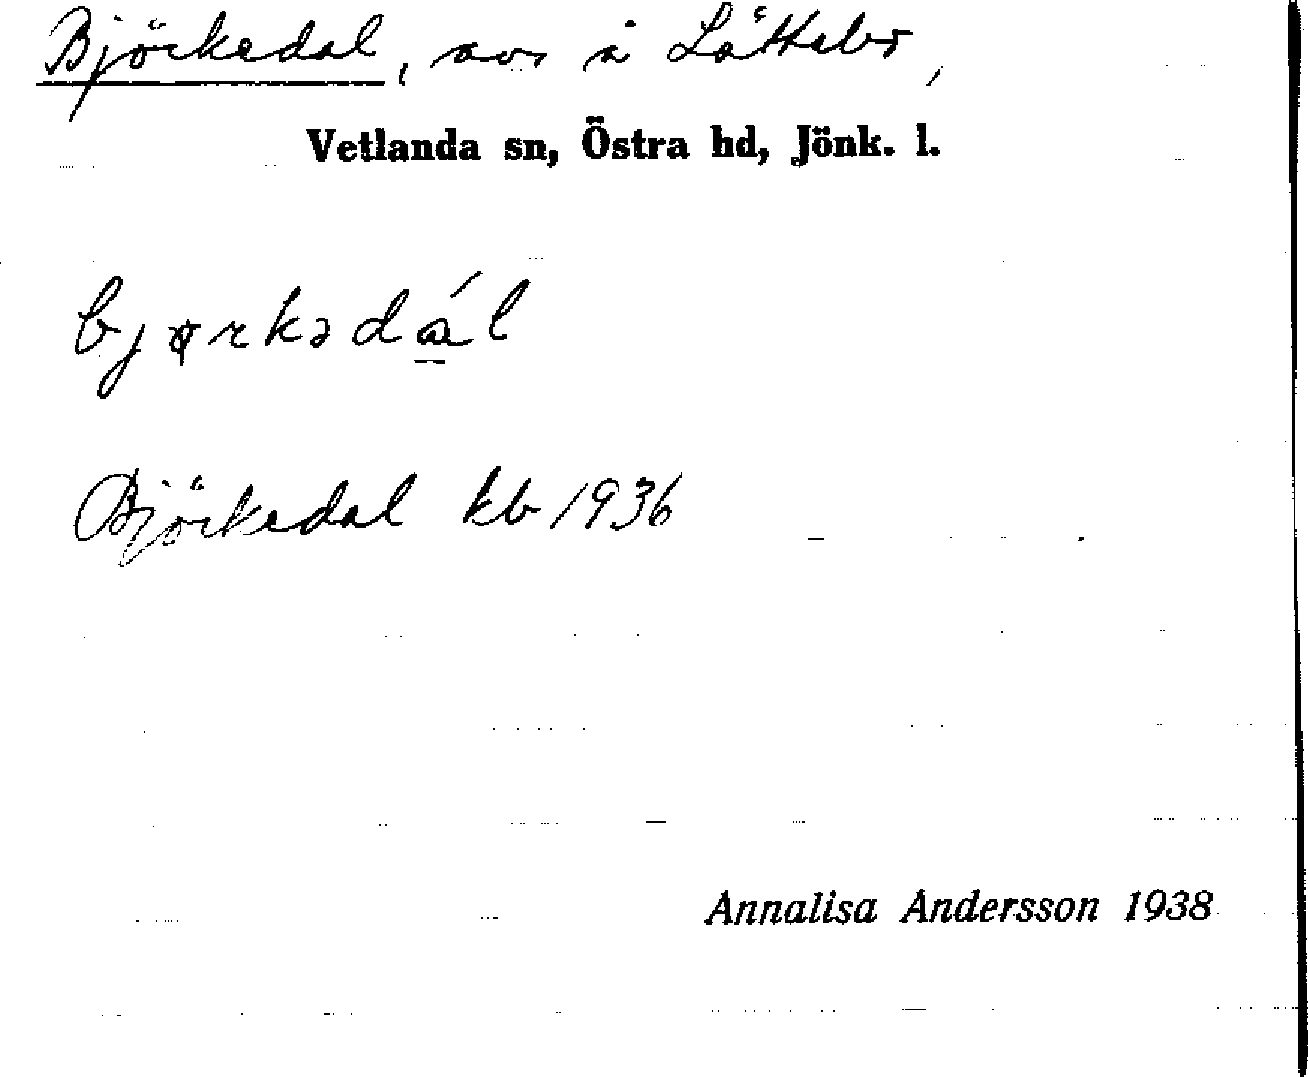 Björkedal, avs å Lättebo,
Vetlanda sn, Östra hd, Jönk. l.
bjørkədál
Björkedal kb 1936
Annalisa Andersson 1938